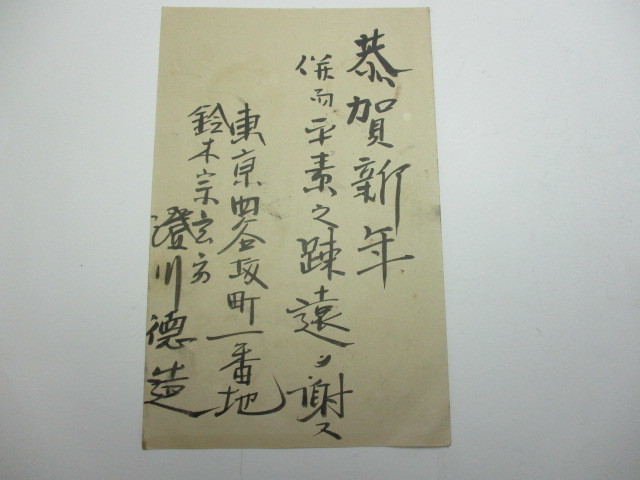 恭賀新年
併而平素之踈遠ヲ謝ス
東京四谷坂町一番地
鈴木宗玄方
澄川德造